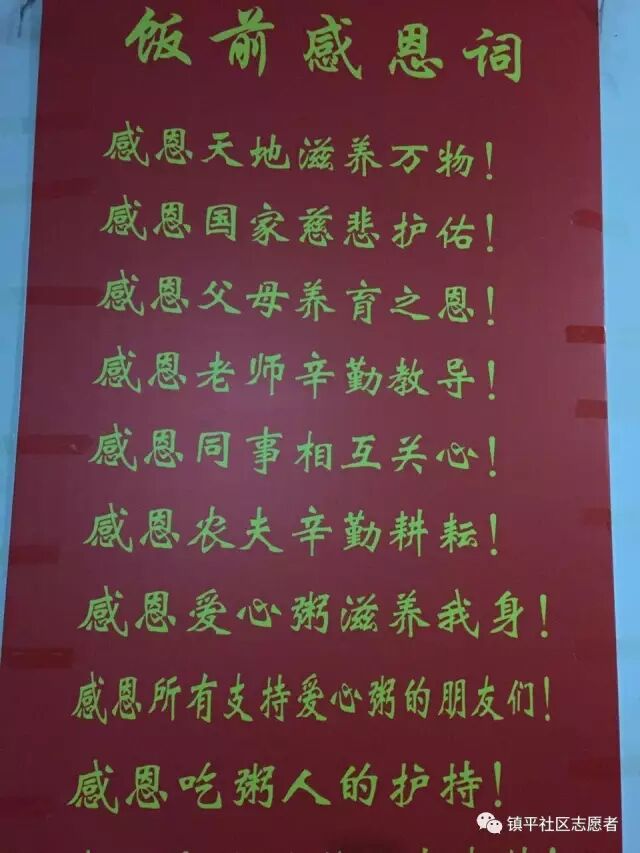 饭前感恩词
感恩天地滋养万物!
感恩国家慈悲护佑!
感恩父母养育之恩!
感恩老师辛勤教导!
感恩同事相互关心!
感恩农夫辛勤耕耘!
感恩爱心粥滋养我身!
感恩所有支持爱心粥的朋友们!
感恩吃粥人的护持!
镇平社区志愿者